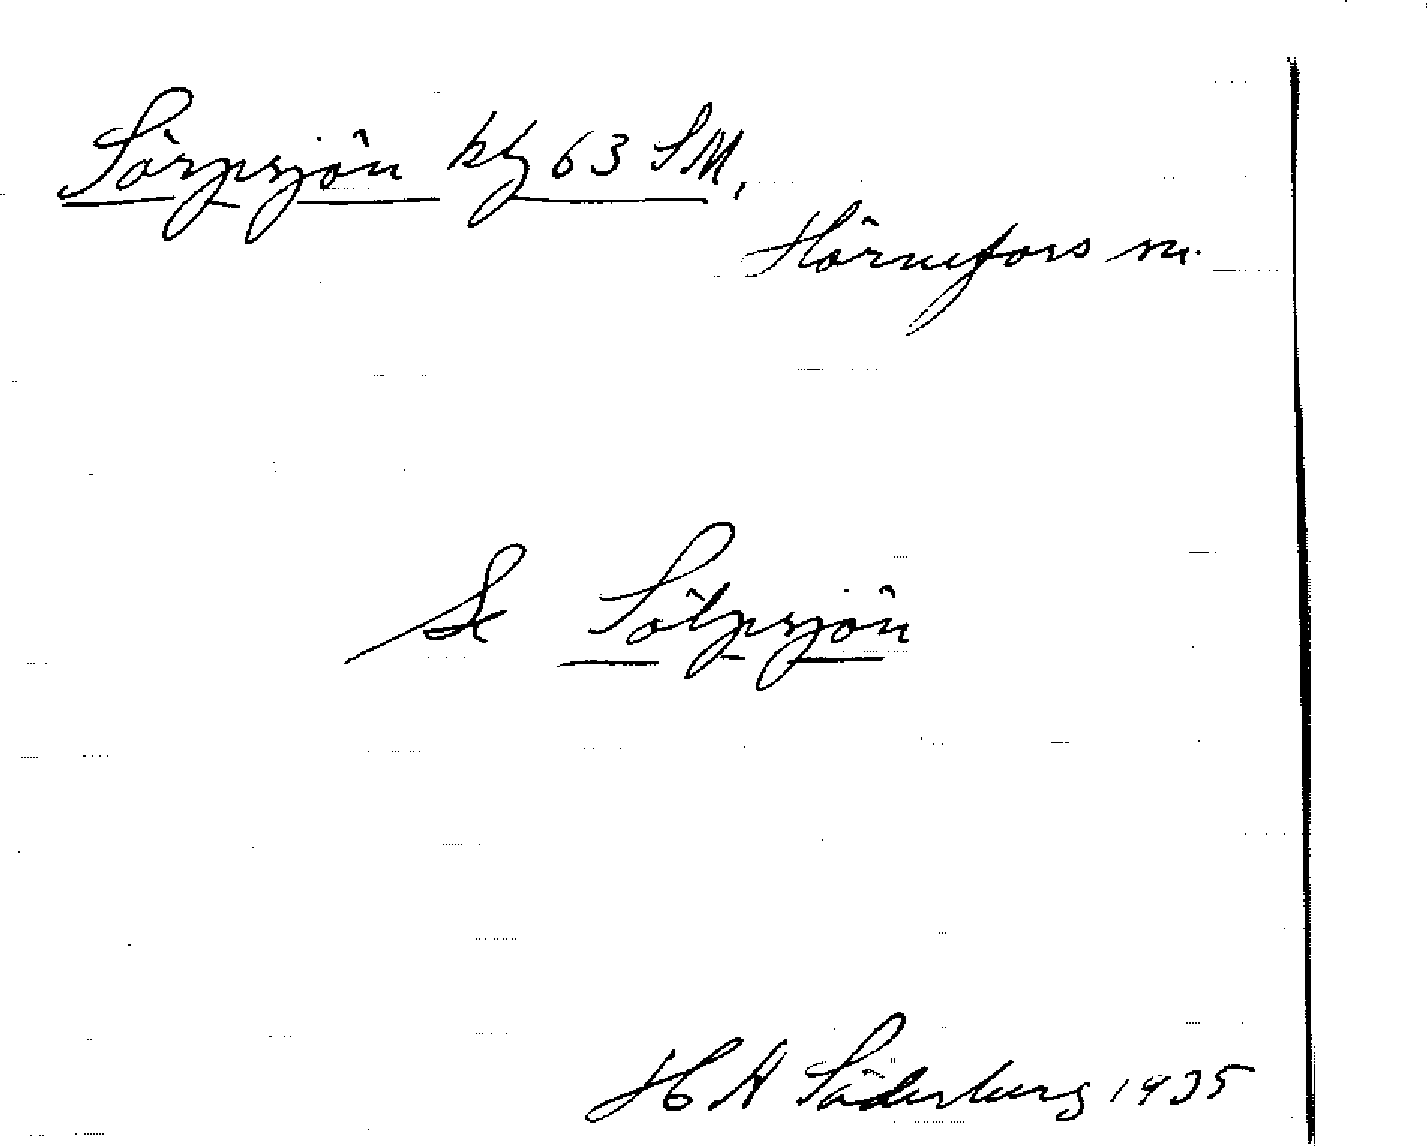 Sörpsjön kbl 63 SM,
Hörnefors sn.
Se Sölpsjön
H A Söderberg 1935